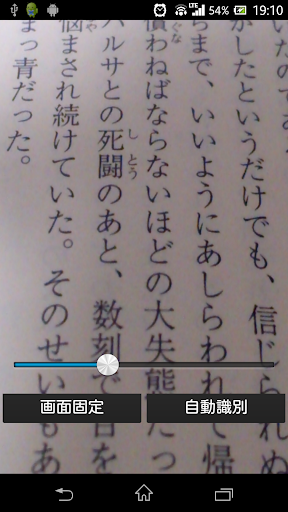 54% 19:10
いたので
がしたというだけでも、信じられぬ
まで、いいようにあしらわれて帰
ぐな
償わねばならないほどの大失態だっ
しとう
バルサとの死闘のあと、数刻で を
や
悩まされ続けていた。そのせいもあ
まっ青だった。
画面固定
自動識別